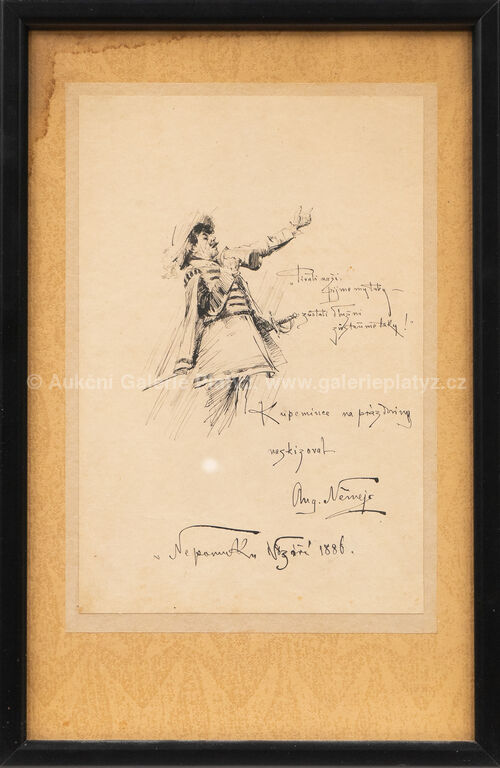 "Pívali naši,
pijme my taky –
zůstali dlužni
zůstaňme taky!"
© Aukční Galerie Platýz, www.galerieplatyz.cz
K upomínce na prázdniny
naskizoval
Aug. Němejc
v Nepomuku V září 1886.